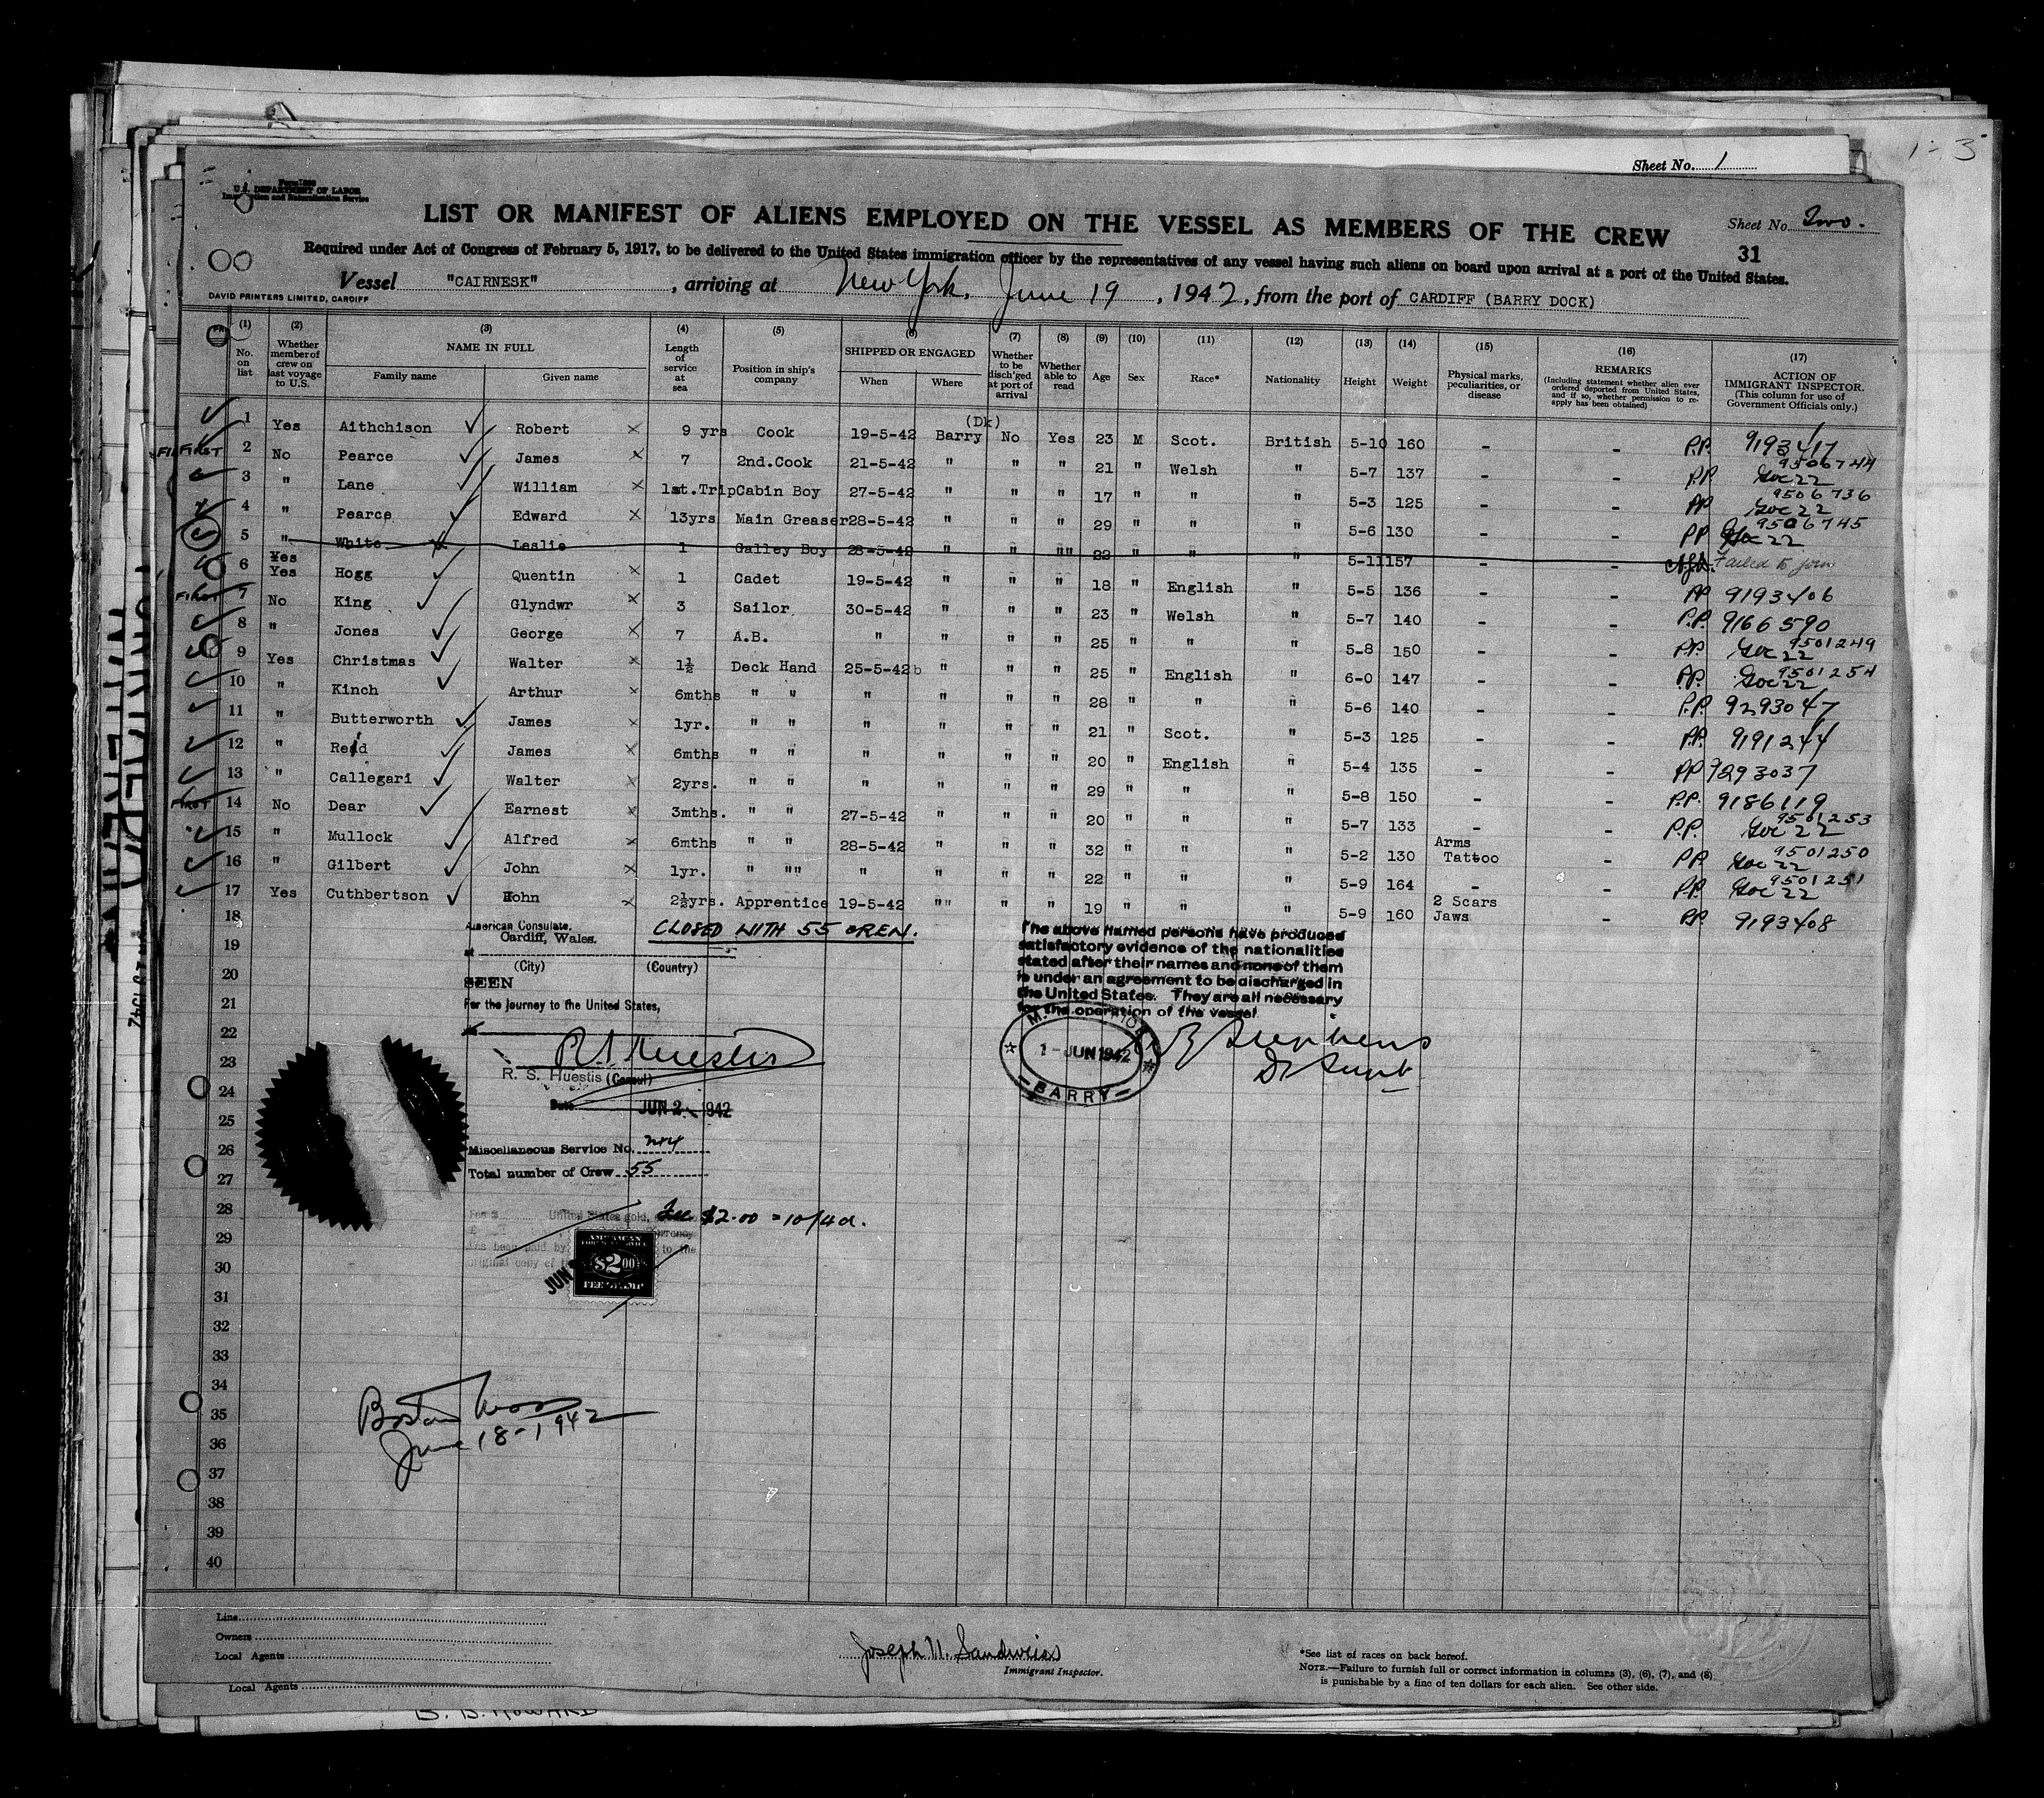 1-3
Sheet No. 1
U.S. DEPARTMENT OF LABOR
Immigration and Naturalization Service
LIST OR MANIFEST OF ALIENS EMPLOYED ON THE VESSEL AS MEMBERS OF THE CREW
Sheet No. Two.
31
Required under Act of Congress of February 5, 1917, to be delivered to the United States immigration officer by the representatives of any vessel having such aliens on board upon arrival at a port of the United States.
Vessel "CAIRNESK", arriving at New York, June 19, 1942, from the port of CARDIFF (BARRY DOCK)
DAVID PRINTERS LIMITED, CARDIFF
(1) (2) (3) (4) (5) (6) (7) (8) (9) (10) (11) (12) (13) (14) (15) (16) (17)
No. on list
Whether member of crew on last voyage to U.S.
NAME IN FULL
Family name
Given name
Length of service at sea
Position in ship's company
SHIPPED OR ENGAGED
When
Where
Whether to be disch'ged at port of arrival
Whether able to read
Age
Sex
Race*
Nationality
Height
Weight
Physical marks, peculiarities, or disease
REMARKS
(Including statement whether alien ever ordered deported from United States, and if so, whether permission to re-apply has been obtained)
ACTION OF IMMIGRANT INSPECTOR.
(This column for use of Government Officials only.)
1 Yes Aithchison Robert 9 yrs Cook 19-5-42 (Dk) Barry No Yes 23 M Scot. British 5-10 160 - - P.P. 9193417
FIRST 2 No Pearce James 7 2nd.Cook 21-5-42 " " " 21 " Welsh " 5-7 137 - - PP 9506744
3 " Lane William 1st.Trip Cabin Boy 27-5-42 " " " 17 " " " 5-3 125 - - PP 9506736
4 " Pearce Edward 13yrs Main Greaser 28-5-42 " " " 29 " " " 5-6 130 - - PP 9506745
5 " White Leslie 1 Galley Boy 28-5-42 " " "" 22 " " " 5-11 157 - - Failed to join
6 Yes Yes Hogg Quentin 1 Cadet 19-5-42 " " " 18 " English " 5-5 136 - - PP 9193406
FIRST 7 No King Glyndwr 3 Sailor 30-5-42 " " " 23 " Welsh " 5-7 140 - - P.P. 9166590
8 " Jones George 7 A.B. " " " " 25 " " " 5-8 150 - - PP. 9501249
9 Yes Christmas Walter 1½ Deck Hand 25-5-42 " " " 25 " English " 6-0 147 - - PP. 9501254
10 " Kinch Arthur 6mths " " " " " " 28 " " " 5-6 140 - - P.P. 9293047
11 " Butterworth James 1yr. " " " " " " 21 " Scot. " 5-3 125 - - PP. 9191244
12 " Reid James 6mths " " " " " " 20 " English " 5-4 135 - - PP 9293037
13 " Callegari Walter 2yrs. " " " " " " 29 " " " 5-8 150 - - P.P. 9186119
FIRST 14 No Dear Earnest 3mths. " " 27-5-42 " " " 20 " " " 5-7 133 - - P.P. 9501253
15 " Mullock Alfred 6mths " " 28-5-42 " " " 32 " " " 5-2 130 Arms Tattoo - PP. 9501250
16 " Gilbert John 1yr. " "" " " " " 22 " " " 5-9 164 - - PP. 9501251
17 Yes Cuthbertson John 2½yrs. Apprentice 19-5-42 "" " " 19 " " " 5-9 160 2 Scars Jaws - PP. 9193408
18
19
20
21
22
23
24
25
26
27
28
29
30
31
32
33
34
35
36
37
38
39
40
American Consulate,
at Cardiff, Wales.
(City) (Country)
CLOSED WITH 55 CREW.
SEEN
For the journey to the United States,
R. S. Huestis (Consul)
Date JUN 2 1942
Miscellaneous Service No.
Total number of Crew 55
Fee $2.00 = 10/4d.
AMERICAN
$2.00
FEE STAMP
JUN
The above named persons have produced
satisfactory evidence of the nationalities
stated after their names and none of them
is under an agreement to be discharged in
the United States. They are all necessary
for the operation of the vessel.
1 - JUN 1942
BARRY
Stephens
Boston Mass
June 18-1942
Line
Owners
Local Agents
Joseph N. Sandweiss
Immigrant Inspector.
*See list of races on back hereof.
NOTE.—Failure to furnish full or correct information in columns (3), (6), (7), and (8)
is punishable by a fine of ten dollars for each alien. See other side.
Local Agents